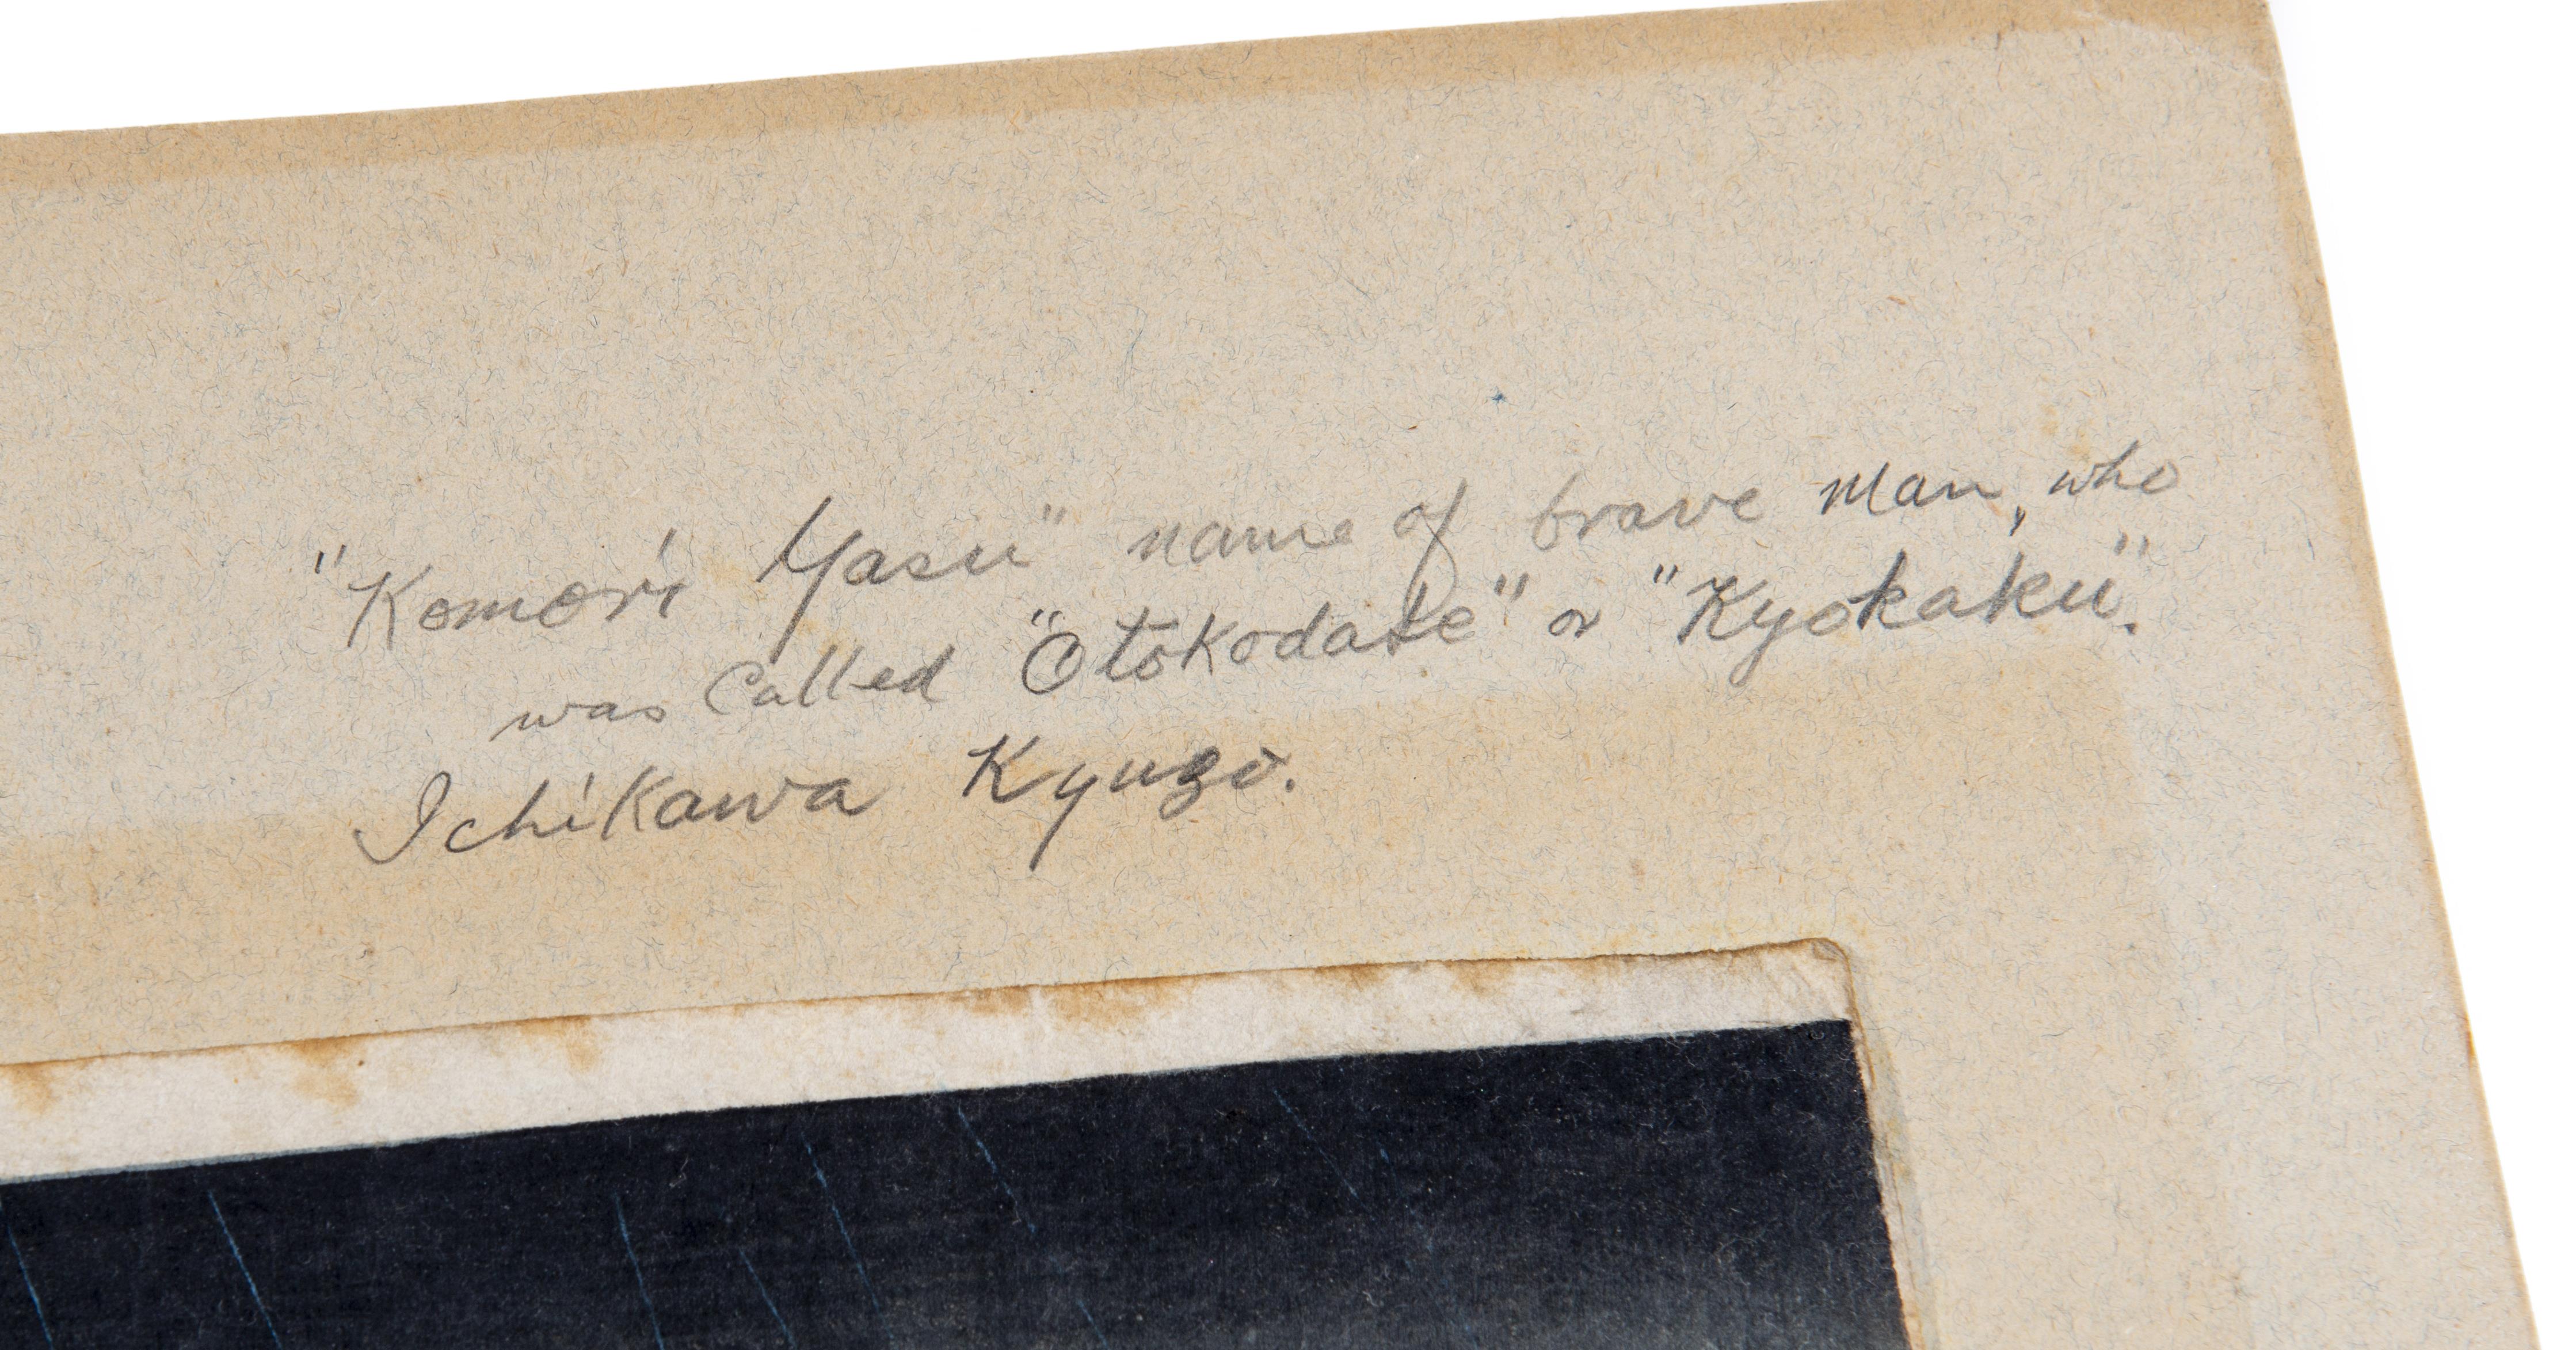 "Komori Yasu" name of brave man, who
was called "Otokodate" or "Kyokaku".
Ichikawa Kyuzo.